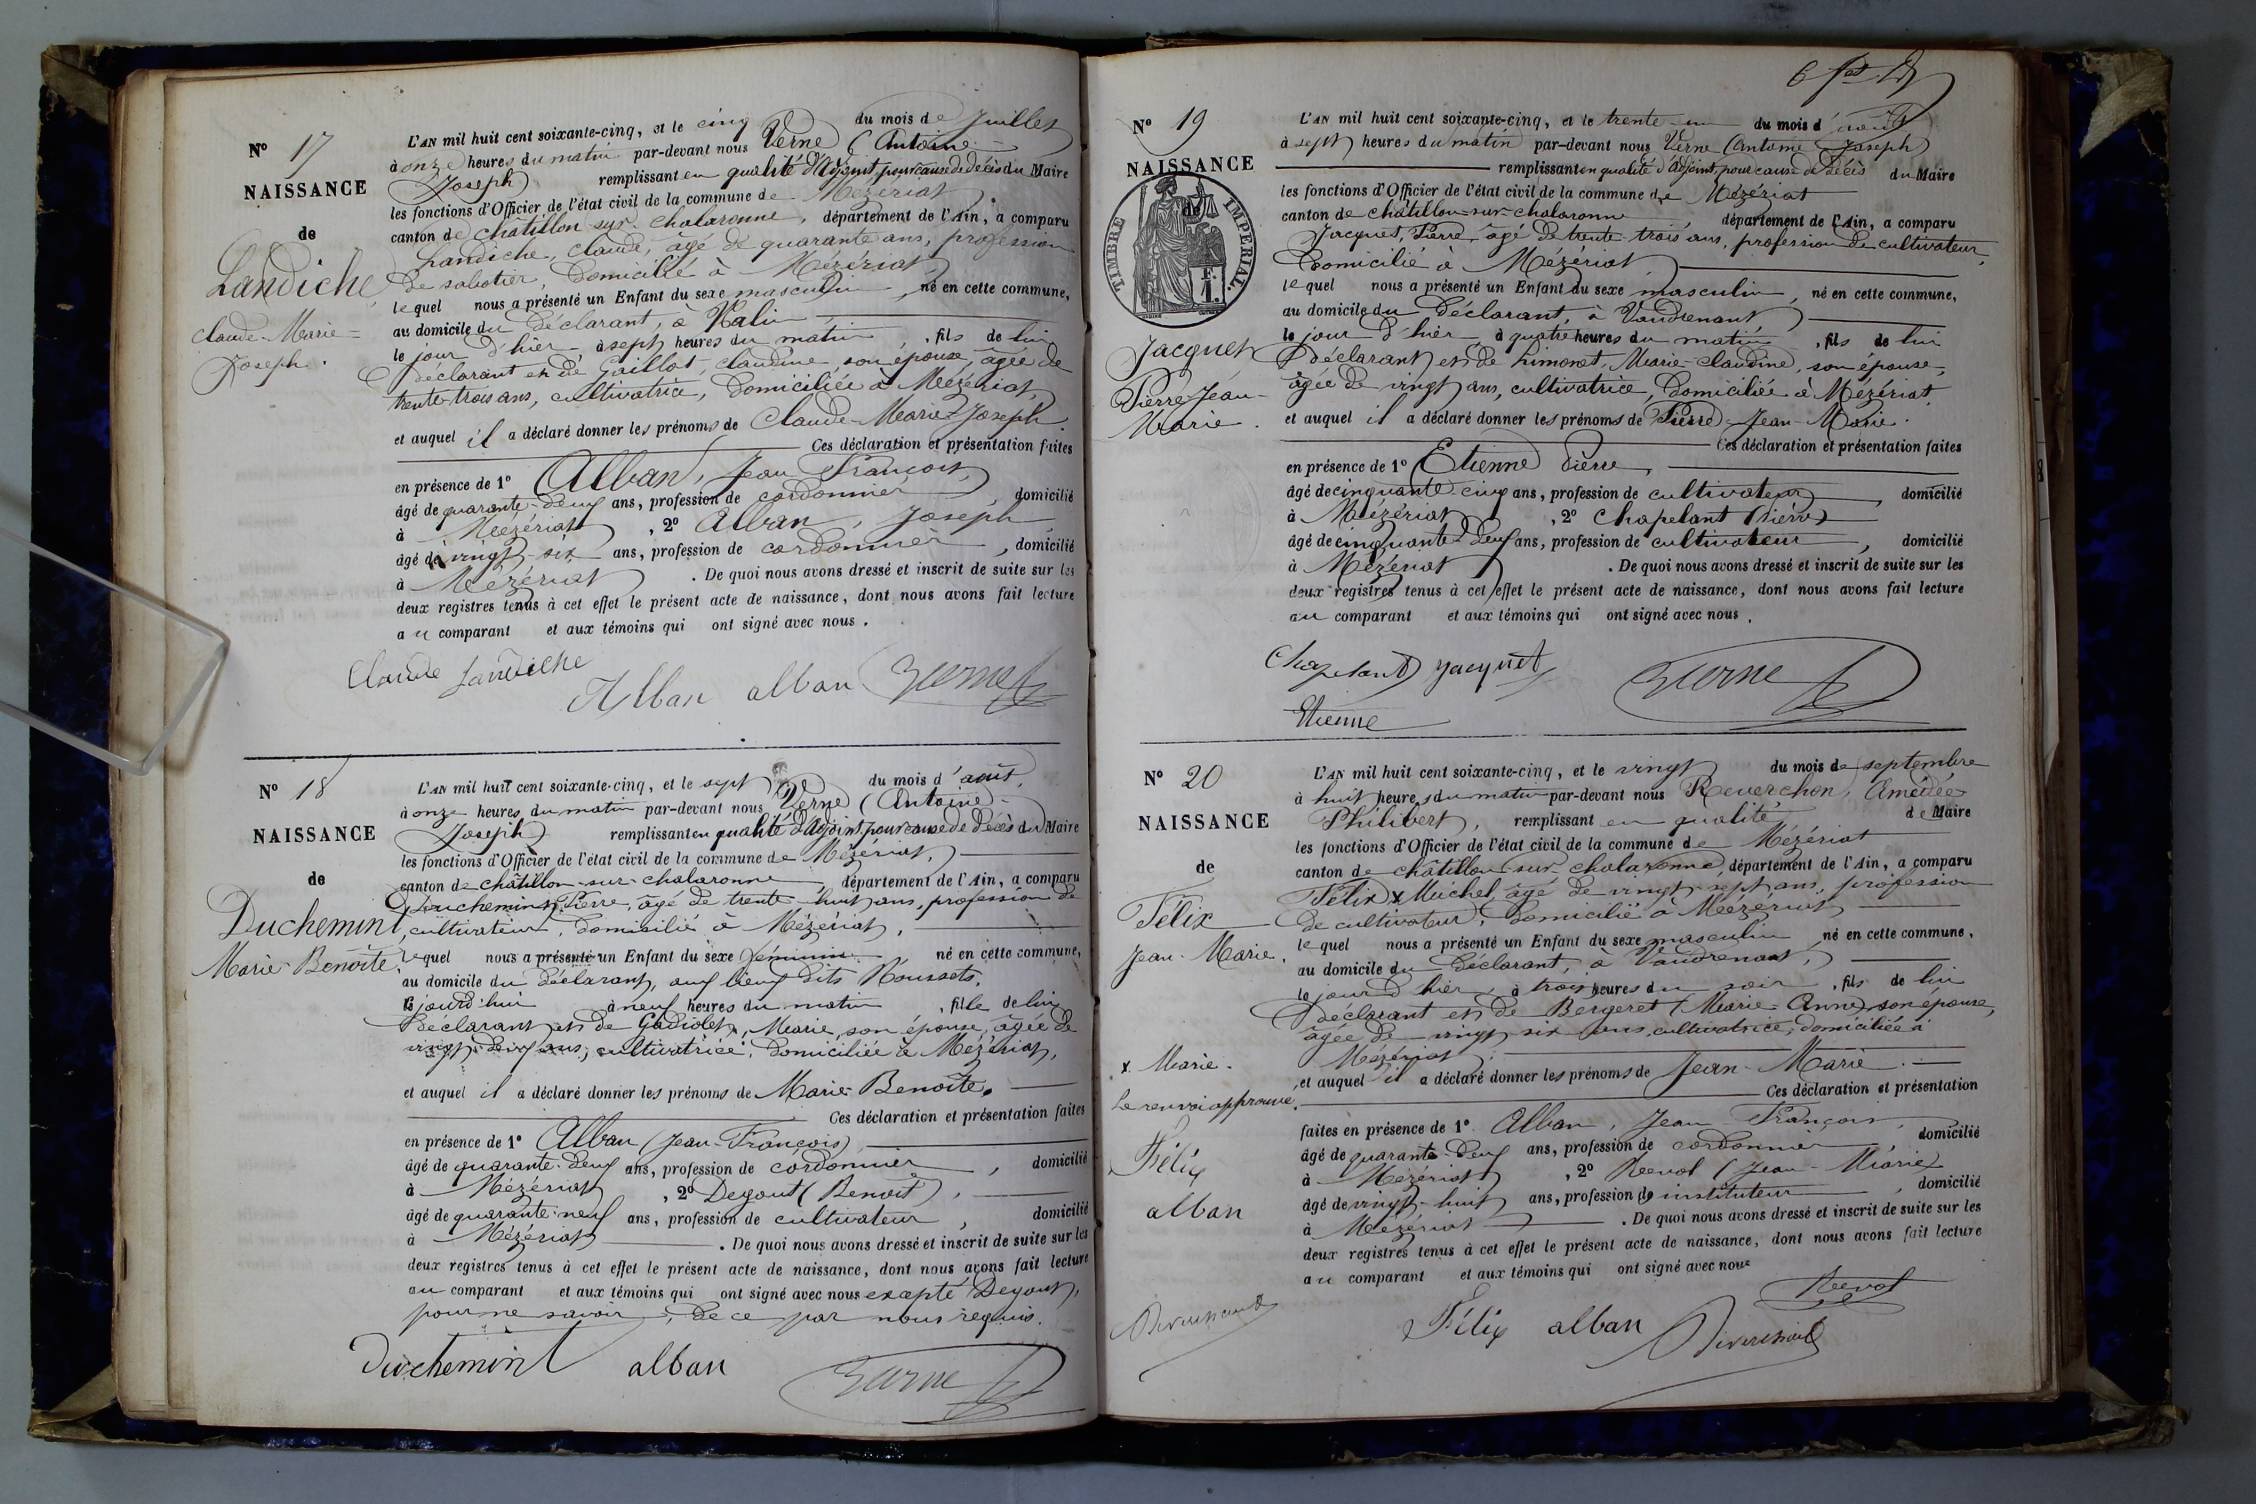 N° 17
NAISSANCE
de
Landiche
Claude-Marie-
Joseph.
L'AN mil huit cent soixante-cinq, et le cinq du mois de Juillet
à onze heures du matin par-devant nous Verne (Antoine-
Joseph) remplissant en qualité d'Adjoint, pour cause de décès du Maire
les fonctions d'Officier de l'état civil de la commune de Mézériat
canton de Châtillon-sur-Chalaronne, département de l'Ain, a comparu
Landiche, Claude, âgé de quarante ans, profession
de sabotier, domicilié à Mézériat
lequel nous a présenté un Enfant du sexe masculin, né en cette commune,
au domicile du déclarant, à
le jour d'hier à sept heures du matin, fils de lui
déclarant et de Gaillot, Claudine, son épouse, âgée de
trente-trois ans, cultivatrice, domiciliée à Mézériat,
et auquel il a déclaré donner les prénoms de Claude-Marie-Joseph.
Ces déclaration et présentation faites
en présence de 1° Alban, Jean François,
âgé de quarante-deux ans, profession de cordonnier, domicilié
à Mézériat, 2° Alban, Joseph,
âgé de vingt-six ans, profession de cordonnier, domicilié
à Mézériat. De quoi nous avons dressé et inscrit de suite sur les
deux registres tenus à cet effet le présent acte de naissance, dont nous avons fait lecture
au comparant et aux témoins qui ont signé avec nous.
Claude Landiche
Alban alban Verne
N° 18
NAISSANCE
de
Duchemint,
Marie-Benoîte.
L'AN mil huit cent soixante-cinq, et le sept du mois d'août,
à onze heures du matin par-devant nous Verne (Antoine-
Joseph) remplissant en qualité d'Adjoint, pour cause de décès du Maire
les fonctions d'Officier de l'état civil de la commune de Mézériat,
canton de Châtillon-sur-Chalaronne, département de l'Ain, a comparu
Duchemint, Pierre, âgé de trente-huit ans, profession de
cultivateur, domicilié à Mézériat,
lequel nous a présenté un Enfant du sexe féminin, né en cette commune,
au domicile du déclarant, aux lieux dits Roussets,
le jourd'hui à neuf heures du matin, fille de lui
déclarant et de Gadiolet, Marie, son épouse, âgée de
vingt-deux ans, cultivatrice, domiciliée à Mézériat,
et auquel il a déclaré donner les prénoms de Marie-Benoîte.
Ces déclaration et présentation faites
en présence de 1° Alban (Jean-François)
âgé de quarante-deux ans, profession de cordonnier, domicilié
à Mézériat, 2° Degout (Benoit),
âgé de quarante-neuf ans, profession de cultivateur, domicilié
à Mézériat. De quoi nous avons dressé et inscrit de suite sur les
deux registres tenus à cet effet le présent acte de naissance, dont nous avons fait lecture
au comparant et aux témoins qui ont signé avec nous excepté Degout,
pour ne savoir, de ce par nous requis.
Duchemint alban Verne
N° 19
NAISSANCE
de
TIMBRE IMPERIAL.
Jacquet
Pierre-Jean-
Marie.
L'AN mil huit cent soixante-cinq, et le trente-un du mois d'août
à sept heures du matin par-devant nous Verne (Antoine Joseph)
remplissant en qualité d'Adjoint, pour cause de décès du Maire
les fonctions d'Officier de l'état civil de la commune de Mézériat
canton de Châtillon-sur-Chalaronne département de l'Ain, a comparu
Jacquet, Pierre, âgé de trente-trois ans, profession de cultivateur,
domicilié à Mézériat
lequel nous a présenté un Enfant du sexe masculin, né en cette commune,
au domicile du déclarant, à Vaudrenant
le jour d'hier, à quatre heures du matin, fils de lui
déclarant et de Limonet, Marie-Claudine, son épouse,
âgée de vingt ans, cultivatrice, domiciliée à Mézériat,
et auquel il a déclaré donner les prénoms de Pierre-Jean-Marie.
Ces déclaration et présentation faites
en présence de 1° Etienne Pierre,
âgé de cinquante-cinq ans, profession de cultivateur, domicilié
à Mézériat, 2° Chapelant (Pierre)
âgé de cinquante-deux ans, profession de cultivateur, domicilié
à Mézériat. De quoi nous avons dressé et inscrit de suite sur les
deux registres tenus à cet effet le présent acte de naissance, dont nous avons fait lecture
au comparant et aux témoins qui ont signé avec nous.
Chapelant Jacquet Verne
Etienne
N° 20
NAISSANCE
de
Félix
Jean-Marie.
x Marie.
Le renvoi approuvé.
Félix
alban
L'AN mil huit cent soixante-cinq, et le vingt du mois de septembre
à huit heures du matin par-devant nous Reverchon, Amédée
Philibert, remplissant en qualité de Maire
les fonctions d'Officier de l'état civil de la commune de Mézériat
canton de Châtillon-sur-Chalaronne, département de l'Ain, a comparu
Félix x Michel, âgé de vingt-sept ans, profession
de cultivateur, domicilié à Mézériat
lequel nous a présenté un Enfant du sexe masculin, né en cette commune,
au domicile du déclarant, à Vaudrenant,
le jour d'hier, à trois heures du soir, fils de lui
déclarant et de Bergeret (Marie-Anne) son épouse,
âgée de vingt-six ans, cultivatrice, domiciliée à
Mézériat
et auquel il a déclaré donner les prénoms de Jean-Marie.
Ces déclaration et présentation
faites en présence de 1° Alban, Jean François, domicilié
âgé de quarante-deux ans, profession de cordonnier,
à Mézériat, 2° Revol (Jean-Marie)
âgé de vingt-huit ans, profession de instituteur, domicilié
à Mézériat. De quoi nous avons dressé et inscrit de suite sur les
deux registres tenus à cet effet le présent acte de naissance, dont nous avons fait lecture
au comparant et aux témoins qui ont signé avec nous
Revol
Félix alban